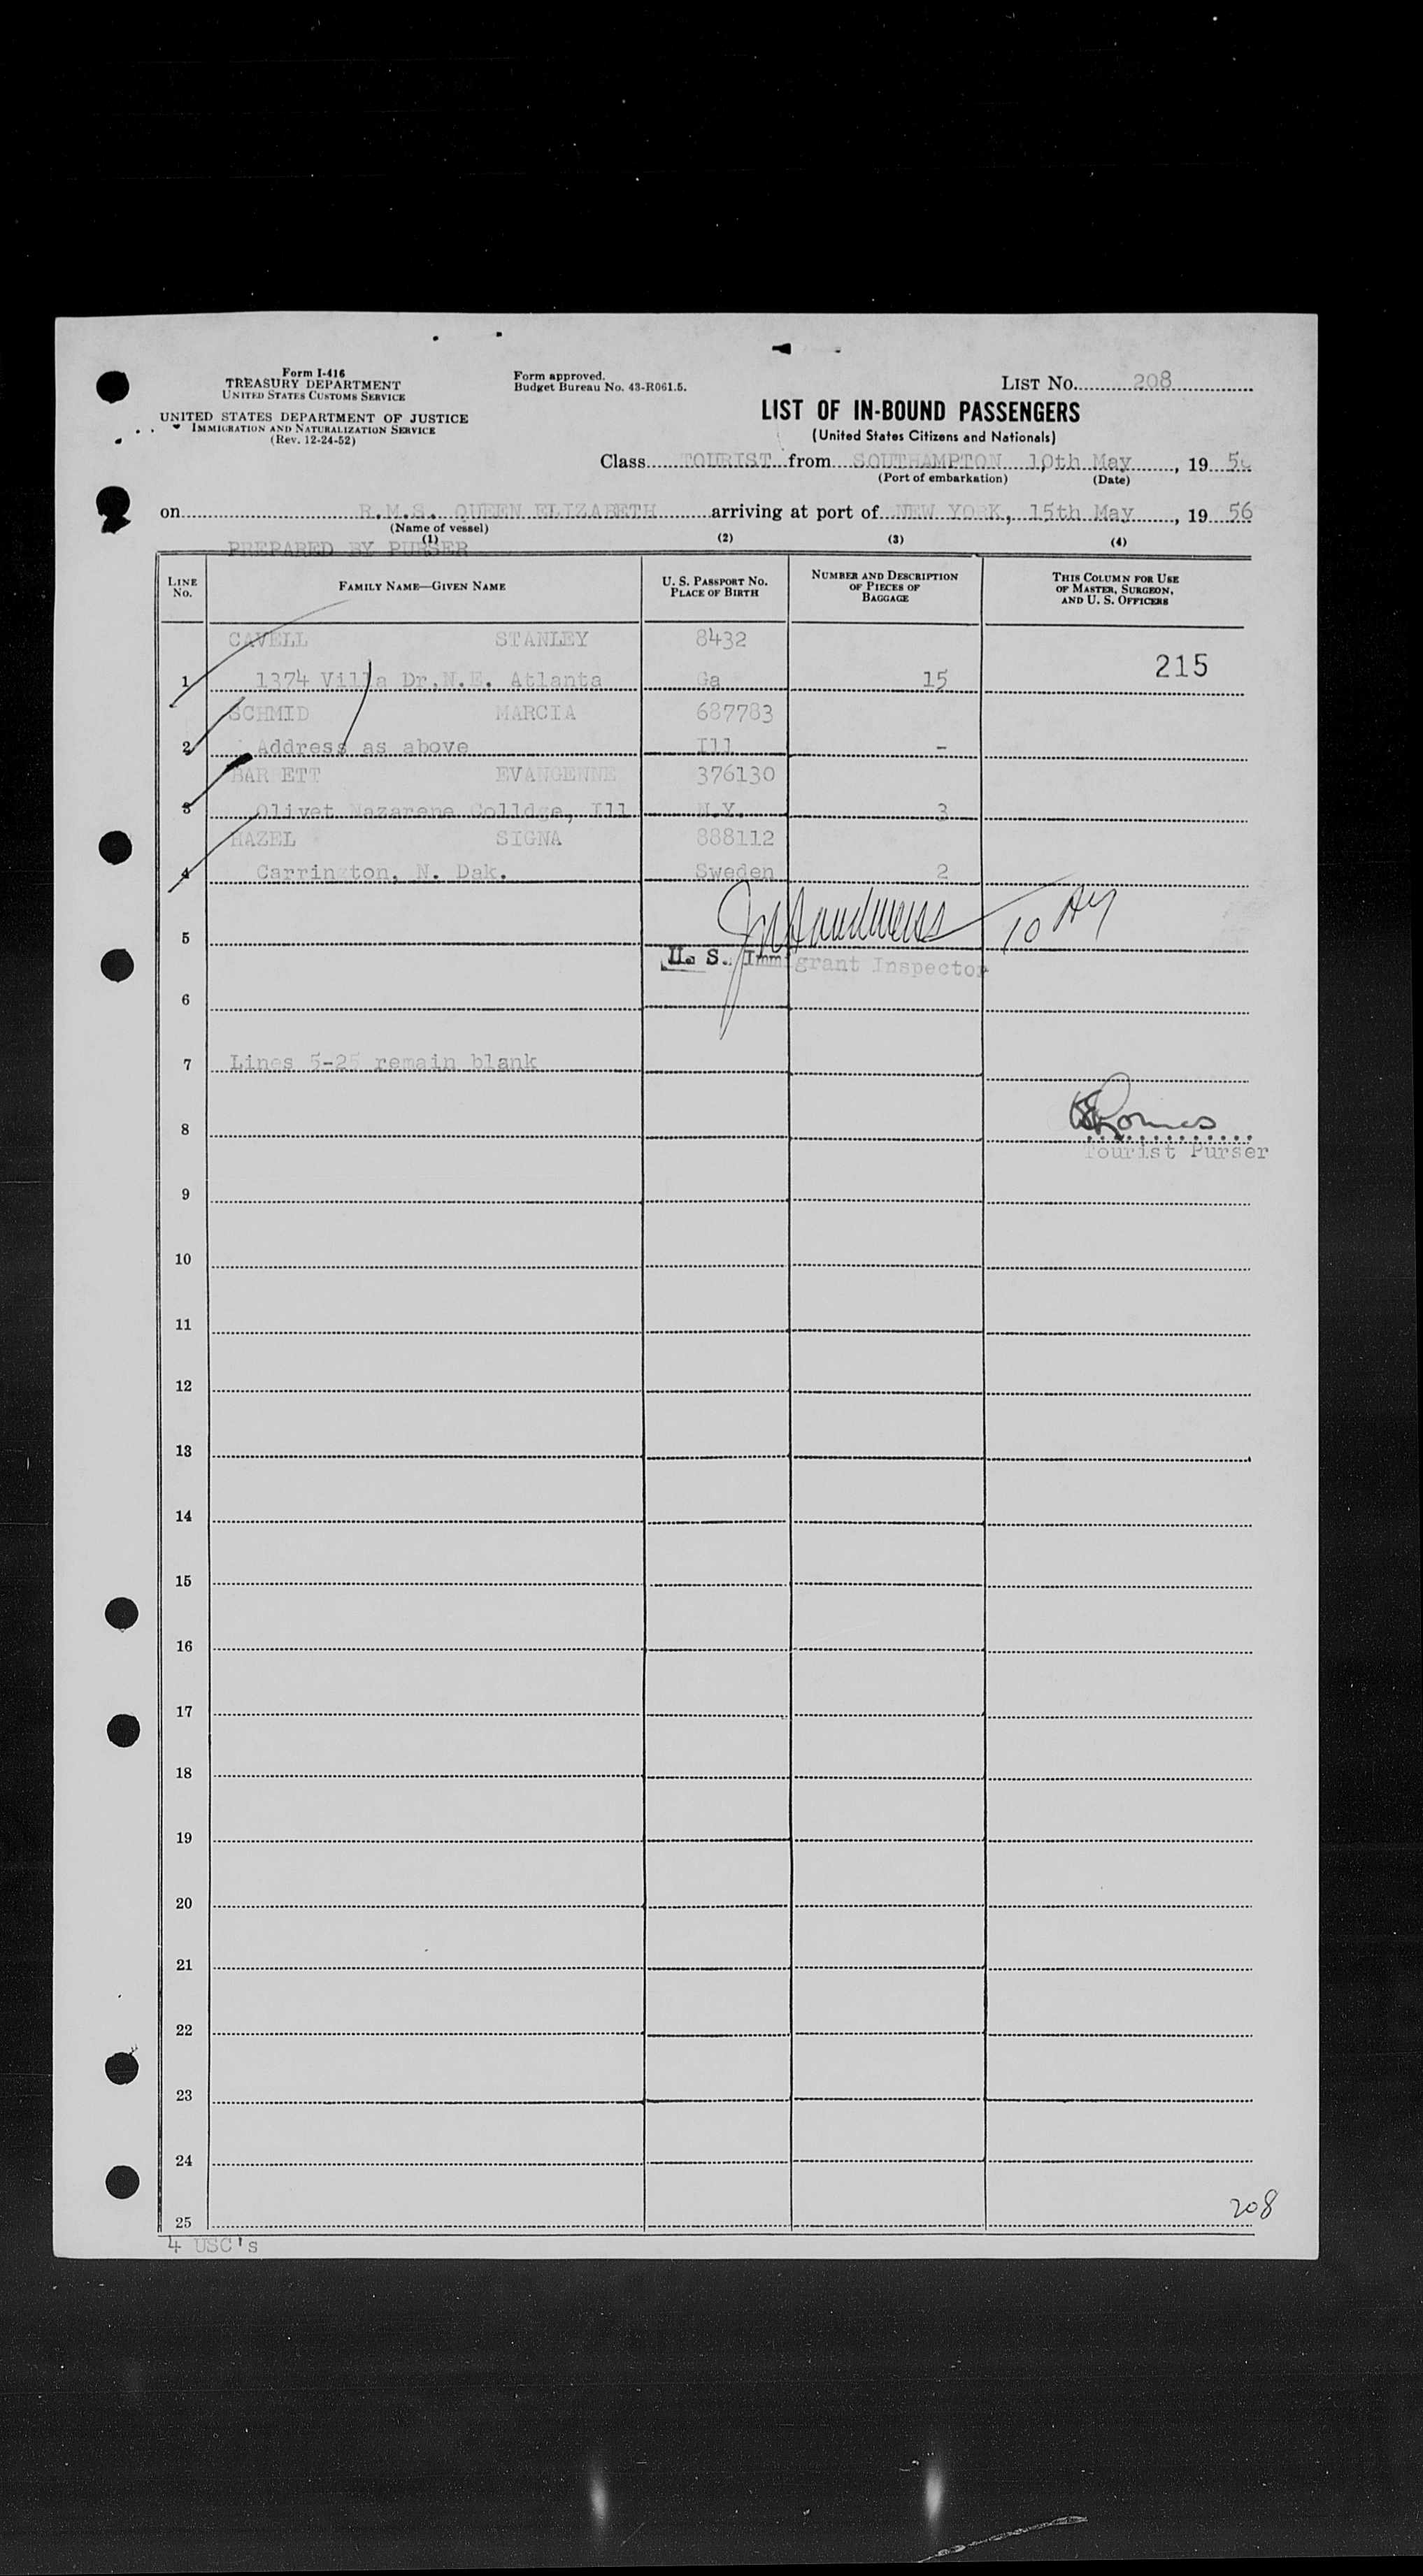 Form I-416
TREASURY DEPARTMENT
UNITED STATES CUSTOMS SERVICE
UNITED STATES DEPARTMENT OF JUSTICE
IMMIGRATION AND NATURALIZATION SERVICE
(Rev. 12-24-52)
Form approved.
Budget Bureau No. 43-R061.5.
LIST No. 208
LIST OF IN-BOUND PASSENGERS
(United States Citizens and Nationals)
Class TOURIST from SOUTHAMPTON 10th May, 19 56
(Port of embarkation) (Date)
on R.M.S. QUEEN ELIZABETH arriving at port of NEW YORK, 15th May, 19 56
(Name of vessel)
(1) (2) (3) (4)
PREPARED BY PURSER
LINE No. FAMILY NAME—GIVEN NAME U. S. PASSPORT No. PLACE OF BIRTH NUMBER AND DESCRIPTION OF PIECES OF BAGGAGE THIS COLUMN FOR USE OF MASTER, SURGEON, AND U. S. OFFICERS
CAVELL STANLEY 8432
1 1374 Villa Dr.N.E. Atlanta Ga 15 215
SCHMID MARCIA 687783
2 Address as above Ill -
BAR ETT EVANGENNE 376130
3 Olivet Nazarene Colldge, Ill N.Y. 3
HAZEL SIGNA 888112
4 Carrington, N. Dak. Sweden 2
5 10
U. S. Immigrant Inspector
6
7 Lines 5-25 remain blank
8
Tourist Purser
9
10
11
12
13
14
15
16
17
18
19
20
21
22
23
24
208
25
4 USC's